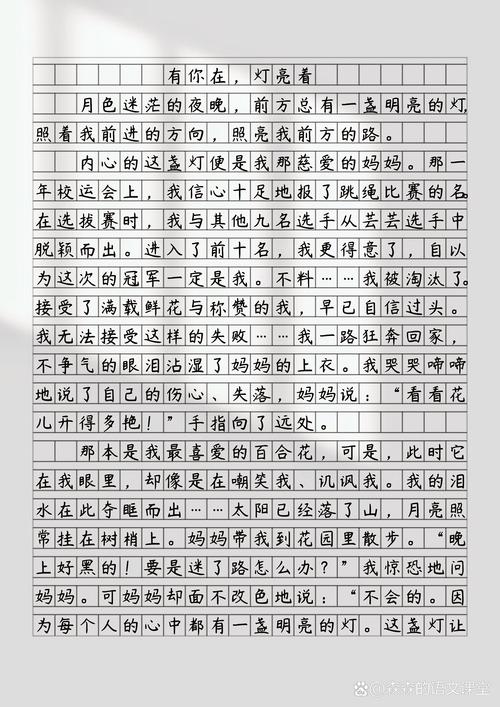 有你在，灯亮着
月色迷茫的夜晚，前方总有一盏明亮的灯，
照着我前进的方向，照亮我前方的路。
内心的这盏灯便是我那慈爱的妈妈。那一
年校运会上，我信心十足地报了跳绳比赛的名。
在选拔赛时，我与其他九名选手从芸芸选手中
脱颖而出。进入了前十名，我更得意了，自以
为这次的冠军一定是我。不料……我被淘汰了。
接受了满载鲜花与称赞的我，早已自信过头。
我无法接受这样的失败……我一路狂奔回家，
不争气的眼泪沾湿了妈妈的上衣。我哭哭啼啼
地说了自己的伤心、失落，妈妈说：“看看花
儿开得多艳！”手指向了远处。
那本是我最喜爱的百合花，可是，此时它
在我眼里，却像是在嘲笑我、讥讽我。我的泪
水在此夺眶而出……太阳已经落了山，月亮照
常挂在树梢上。妈妈带我到花园里散步。“晚
上好黑的！要是迷了路怎么办？”我惊恐地问
妈妈。可妈妈却面不改色地说：“不会的。因
为每个人的心中都有一盏明亮的灯。这盏灯让
@森森的语文课堂